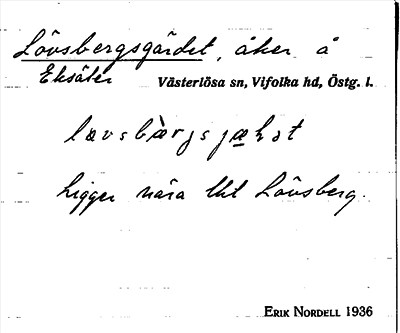 Lövsbergsgärdet, åker å
Eksäter Västerlösa sn, Vifolka hd, Östg. l.
Ligger nära lht Lövsberg.
ERIK NORDELL 1936